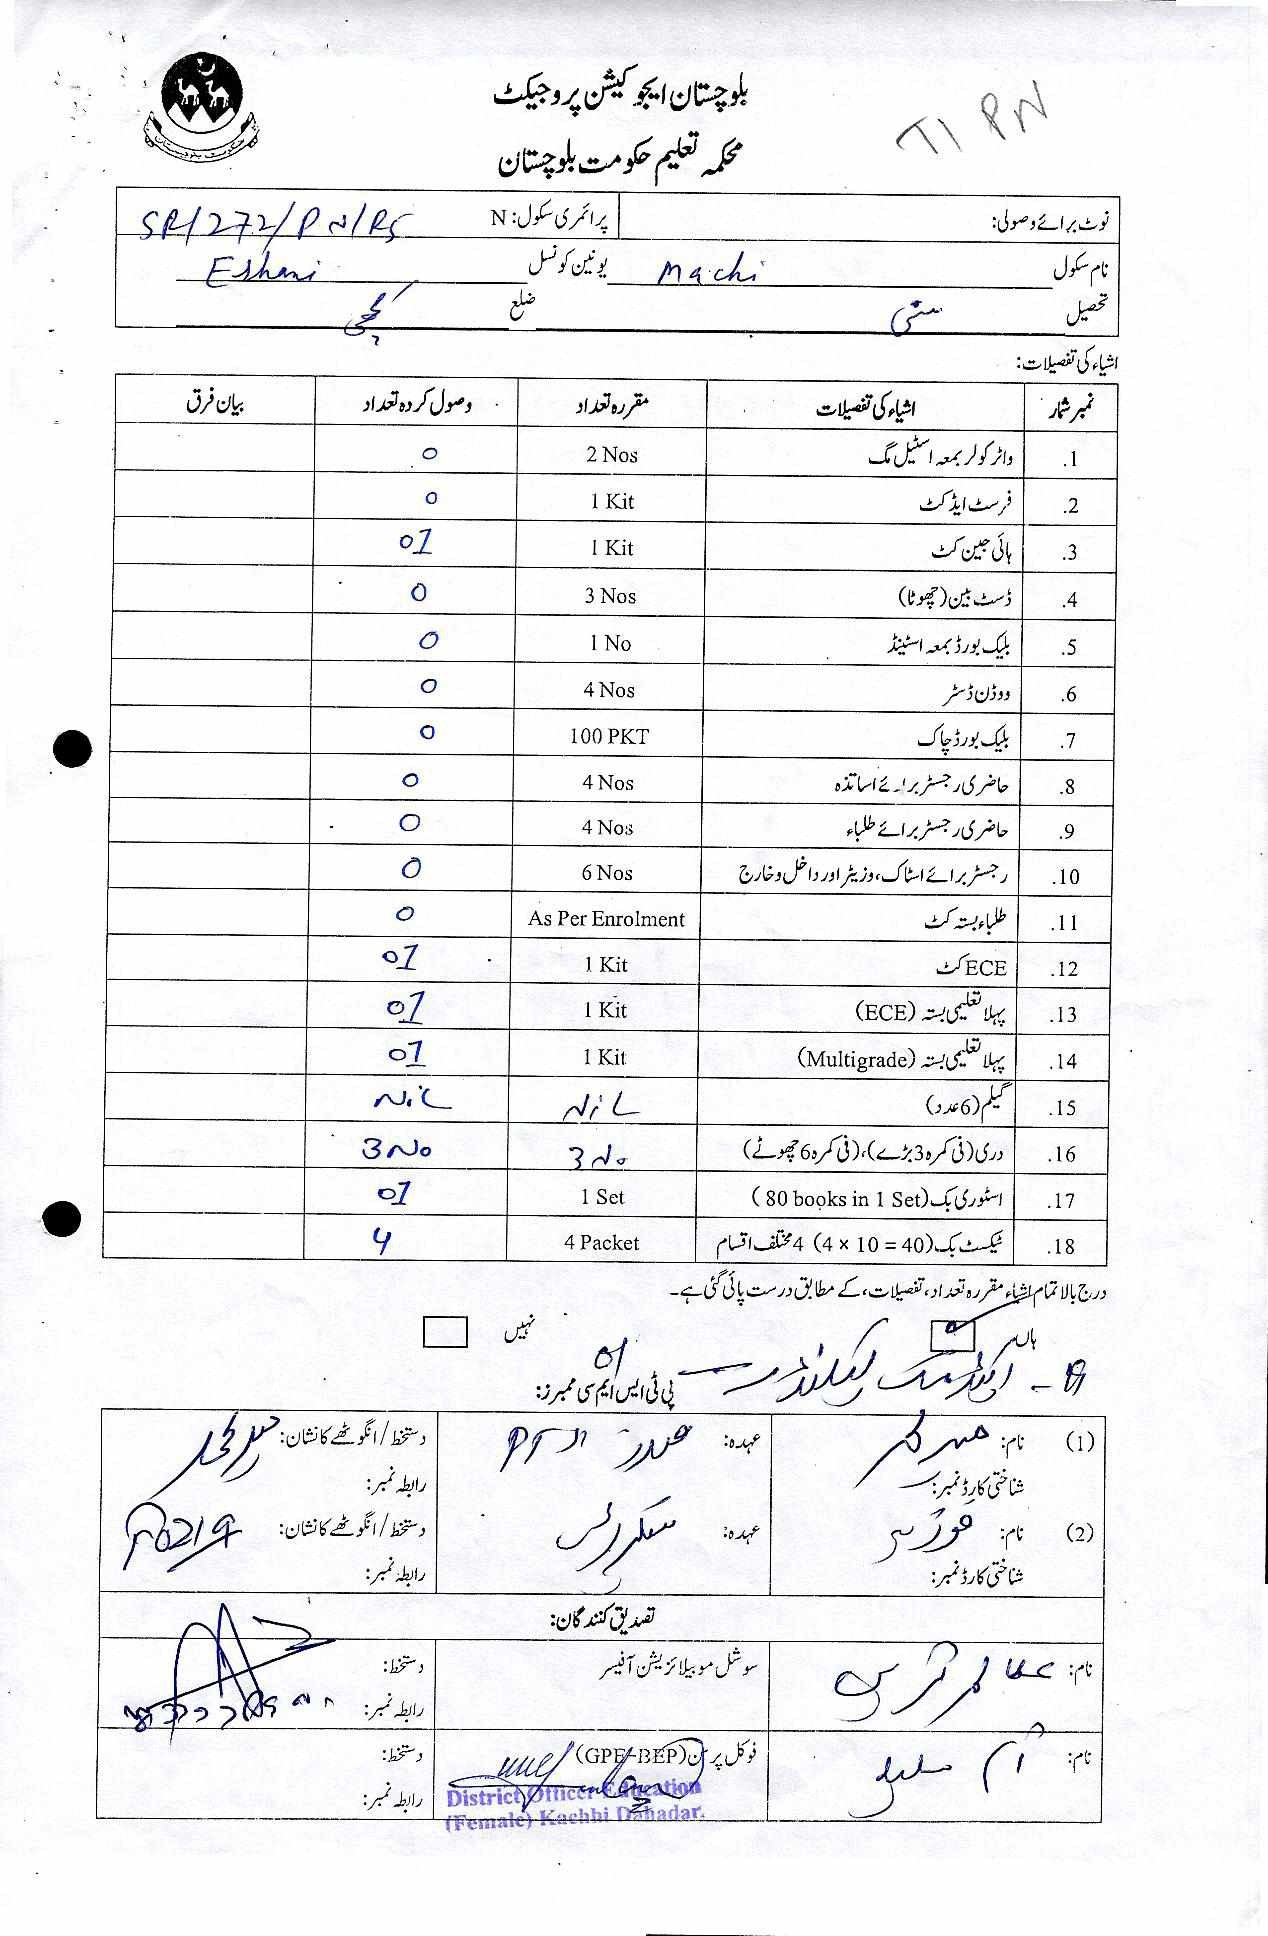 بلوچستان ایجوکیشن پروجیکٹ
TI PN
محکمہ تعلیم حکومت بلوچستان
نوٹ برائے وصولی: پرائمری سکول: N SR/272/PN/RS
نام سکول Machi یونین کونسل Eshani
تحصیل سنی ضلع کچھی
اشیاء کی تفصیلات:
نمبر شمار اشیاء کی تفصیلات مقررہ تعداد وصول کردہ تعداد بیان فرق
1. واٹر کولر بمعہ اسٹیل مگ 2 Nos 0
2. فرسٹ ایڈ کٹ 1 Kit 0
3. ہائی جین کٹ 1 Kit 01
4. ڈسٹ بین (چھوٹا) 3 Nos 0
5. بلیک بورڈ بمعہ اسٹینڈ 1 No 0
6. ووڈن ڈسٹر 4 Nos 0
7. بلیک بورڈ چاک 100 PKT 0
8. حاضری رجسٹر برائے اساتذہ 4 Nos 0
9. حاضری رجسٹر برائے طلباء 4 Nos 0
10. رجسٹر برائے اسٹاک، وزیٹر اور داخل و خارج 6 Nos 0
11. طلباء بستہ کٹ As Per Enrolment 0
12. ECE کٹ 1 Kit 01
13. پہلا تعلیمی بستہ (ECE) 1 Kit 01
14. پہلا تعلیمی بستہ (Multigrade) 1 Kit 01
15. گیلم (6 عدد) NiL NiL
16. دری (فی کمرہ 3 بڑے)، (فی کمرہ 6 چھوٹے) 3 No 3 No
17. اسٹوری بک (80 books in 1 Set) 1 Set 01
18. ٹیکسٹ بک (4 x 10 = 40) 4 مختلف اقسام 4 Packet 4
درج بالا تمام اشیاء مقررہ تعداد، تفصیلات، کے مطابق درست پائی گئی ہے۔
ہاں نہیں
01
پی ٹی ایس ایم سی ممبرز:
(1) نام: عہدہ: دستخط/انگوٹھے کا نشان:
شناختی کارڈ نمبر: رابطہ نمبر:
(2) نام: فوزیہ عہدہ: سیکرٹری دستخط/انگوٹھے کا نشان: Fozia
شناختی کارڈ نمبر: رابطہ نمبر:
تصدیق کنندگان:
نام: سوشل موبیلائزیشن آفیسر دستخط:
رابطہ نمبر:
نام: فوکل پرسن (GPE-BEP) دستخط:
رابطہ نمبر:
District Officer Education
(Female) Kachhi Dahadar.